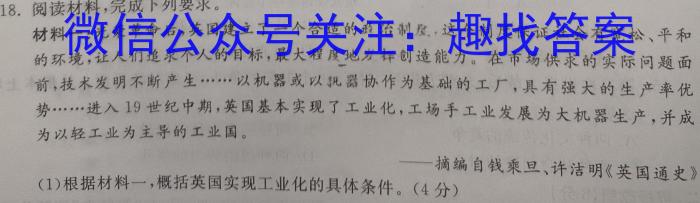 18. 阅读材料,完成下列要求。
微信公众号关注:趣找答案
材料
的环境,让人们追求个人的目标,最大程度地发挥创造能力。在市场供求的实际问题面
前,技术发明不断产生……以机器或以机器协作为基础的工厂,具有强大的生产率优
势……进入19世纪中期,英国基本实现了工业化,工场手工业发展为大机器生产,并成
为以轻工业为主导的工业国。
——摘编自钱乘旦、许洁明《英国通史》
(1)根据材料一,概括英国实现工业化的具体条件。(4分)